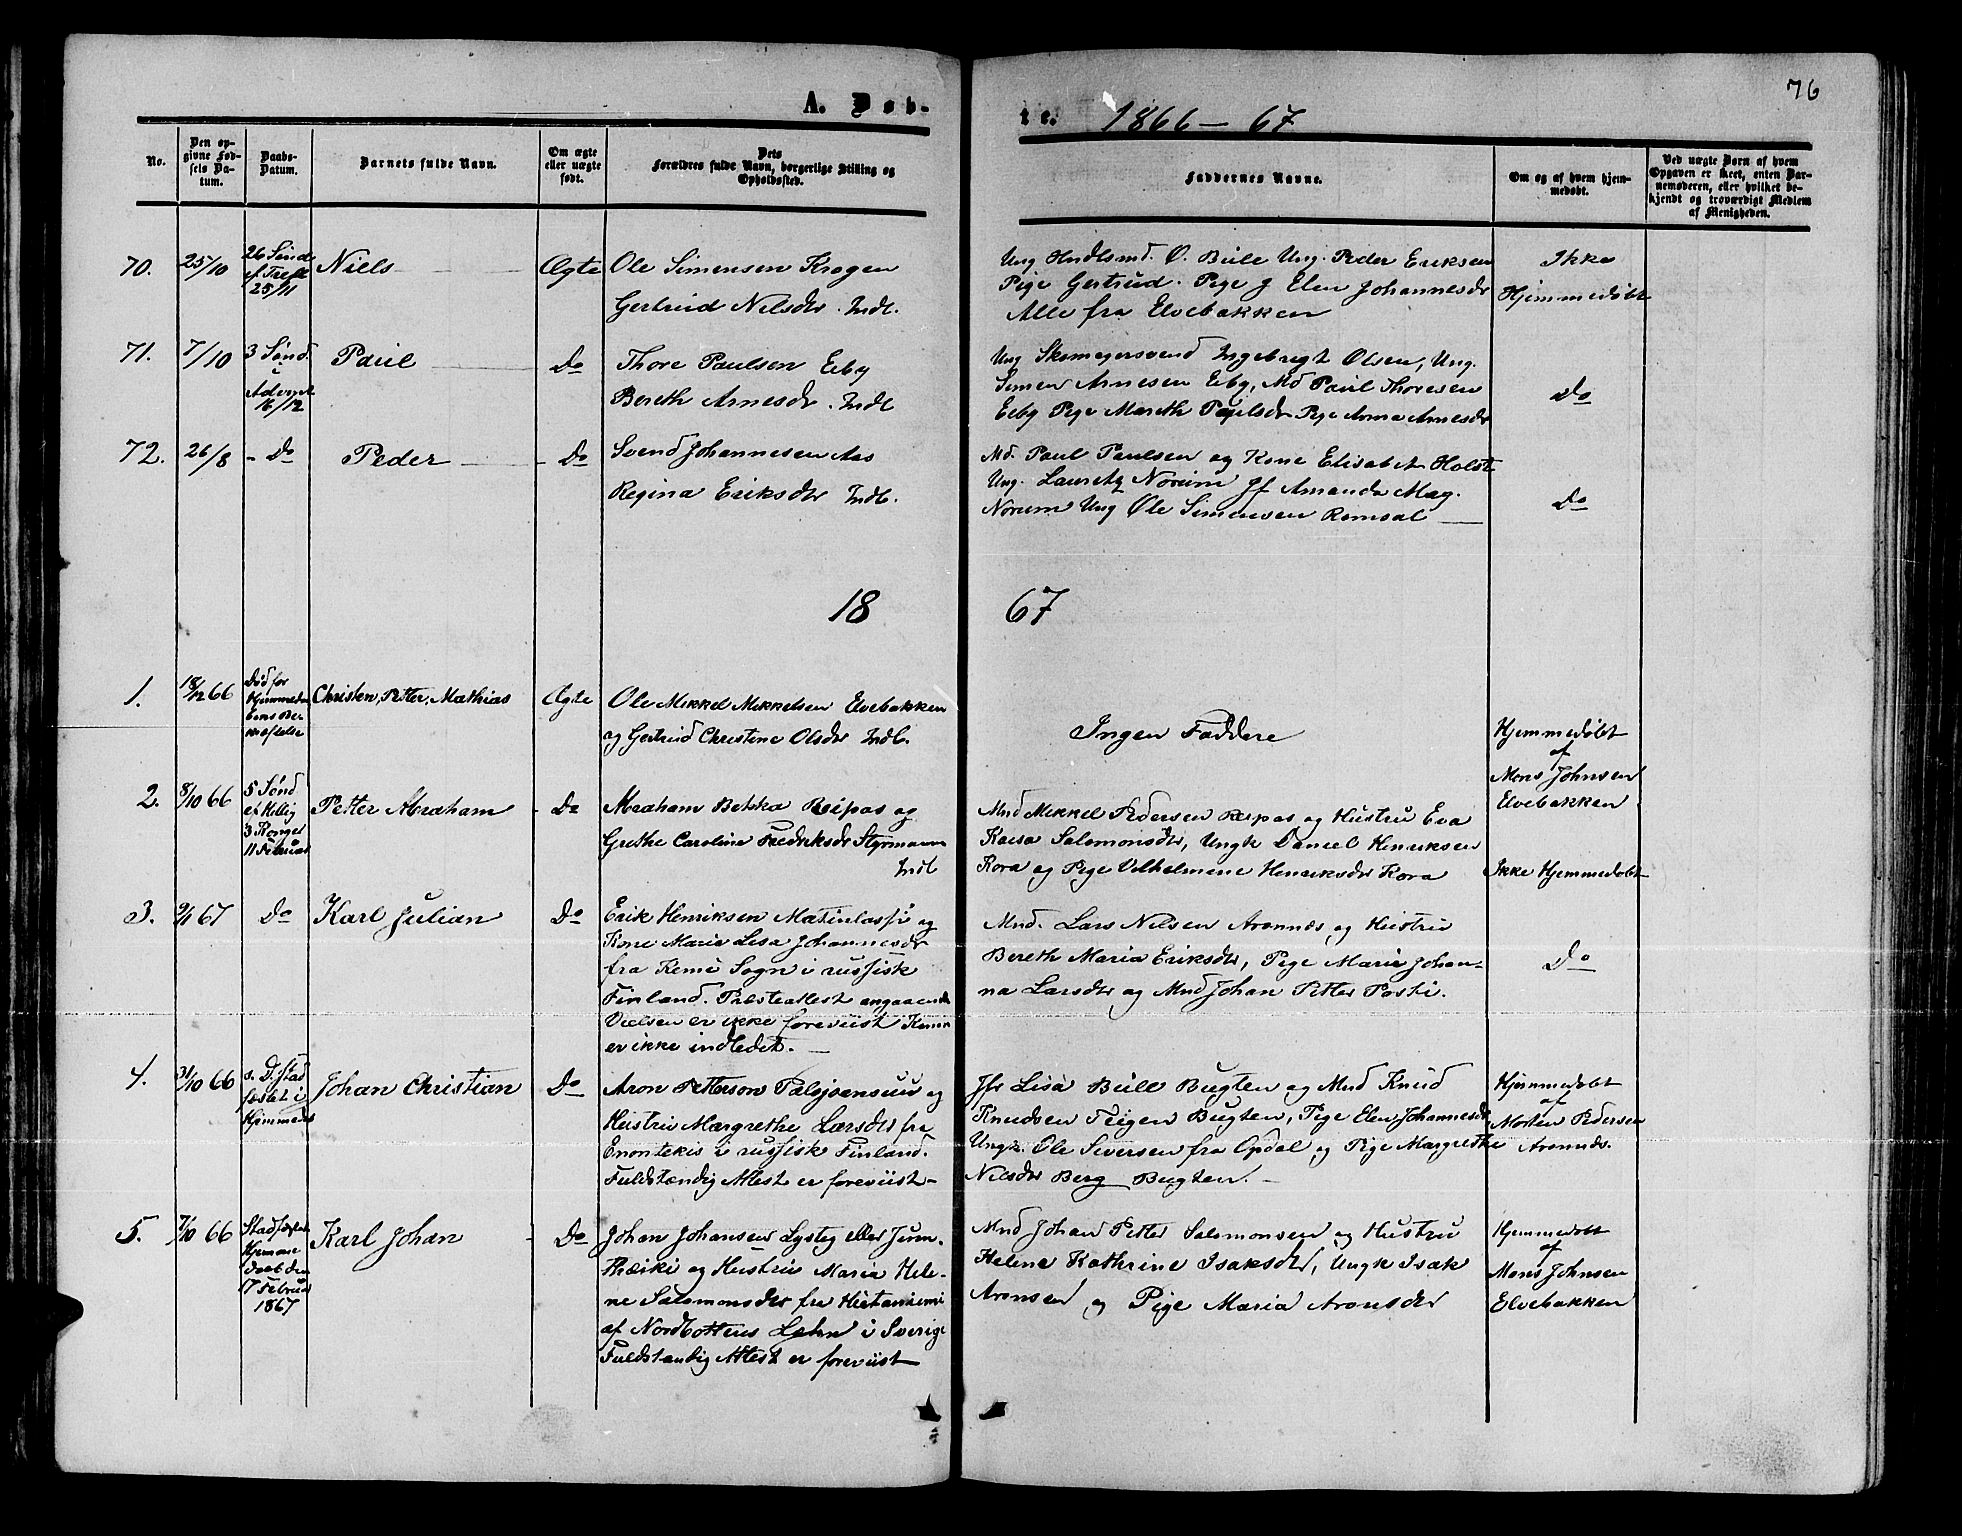 76
A. Døb-
te. 1866 – 67
No.
Den op-
givne Fød-
sels Da-
tum.
Daabs-
Datum.
Barnets fulde Navn.
Om ægte
eller uægte
født.
Dets
Forældres fulde Navn, borgerlige Stilling og
Opholdssted.
Faddernes Navne.
Om og af hvem hjem-
medøbt.
Ved uægte Børn af hvem
Opgaven er skeet, enten Bar-
nemoderen, eller hvilket be-
kjendt og troværdigt Medlem
af Menigheden.
70.
25/10
26 Sønd
ef Tref
25/11
Niels
Ægte
Ole Simensen Kragen
Gertrud Nilsdtr. Indl.
Ung Hndlsmd. O. Bull Ung. Peder Eriksen
Pige Gertrud. Pige J Elen Johannesdr
Alle fra Elvebakken
Ikke
Hjemmedøbt
71.
7/10
3 Sønd.
i
Advent
16/12
Paul
Do
Thore Paulsen Eiby
Bereth Arnesdr. Indl
Ung Skomagersvend Ingebrigt Olsen, Ung.
Simen Arnesen Eiby, Md Paul Thoresen
Eiby Pige Mareth Paulsdr Pige Anna Arnesdr
Do
72.
26/8
- Do
Peder
- Do
Svend Johannesen Aas
Regina Eriksdtr Indl.
Md. Paul Paulsen og Kone Elisabet Holst
Ung. Lauritz Norum Jf Amanda Mag.
Norum Ung Ole Simensen Romsal
Do
18 67
1.
18/12 66
Død før
Hjemmedaa
bens Be
kræftelse
Christen, Petter, Mathias
Ægte
Ole Mikkel Mikkelsen Elvebakken
og Gertrud Christine Olsdr Indl.
Ingen Faddere
Hjemmedøbt
af
Mons Johnsen
Elvebakken
2.
8/10 66
5 Sønd
ef Hellig
3 Konger
11 Februar
Petter Abraham
- Do
Abraham Betska Reipas og
Grethe Caroline Fredriksdr Styrmann
Indl
Mnd Mikkel Pedersen Reipas og Hustru Eva
Kaisa Salomonsdtr, Ungk Daniel Henriksen
Kora og Pige Vilhelmine Henriksdr Kora
Ikke Hjemmedøbt
3.
9/1 67
Do
Karl Julian
Do
Erik Henriksen Matinlassi og
Kone Maria Lisa Johannesdr
fra Kemi Sogn i russisk
Finland. Præsteattest angaaende
Vielsen er ikke foreviist Konen
er ikke indledet.
Mnd. Lars Nilsen Aronnæs og Hustru
Bereth Maria Eriksdtr, Pige Maria Johan-
na Larsdtr og Mnd Johan Petter Posti.
Do
4.
31/10 66
s. D. Stad
fæstet i
Hjemmeda
Johan Christian
Do
Aron Petterson Palojoensuu og
Hustru Margrethe Larsdtr fra
Enontekis i russisk Finland.
Fuldstændig Attest er foreviist-
Jfr Lisa Bull Bugten og Mnd Knud
Knudsen Teigen Bugten, Pige Elen Johannesdr,
Ungk. Ole Siversen fra Opdal og Pige Margrethe
Nilsdtr Berg Bugten.
Hjemmedøbt
af
Morten Pedersen
Aronnæs.
5.
7/10 66
Stadfæstet
Hjemme
daab den
17 Februar
1867
Karl Johan
- Do
Johan Johansen Lysteg eller Jun-
Hustru Maria Hele-
ne Salomonsdtr fra Hietaniemi
af Nordbottens Læhn i Sverige
Fuldstændig Attest er foreviist
Mnd Johan Petter Salomonsen og Hustru
Helene Kathrine Isaksdtr, Ungk Isak
Aronsen og Pige Maria Aronsdtr
Hjemmedøbt
af
Mons Johnsen
Elvebakken